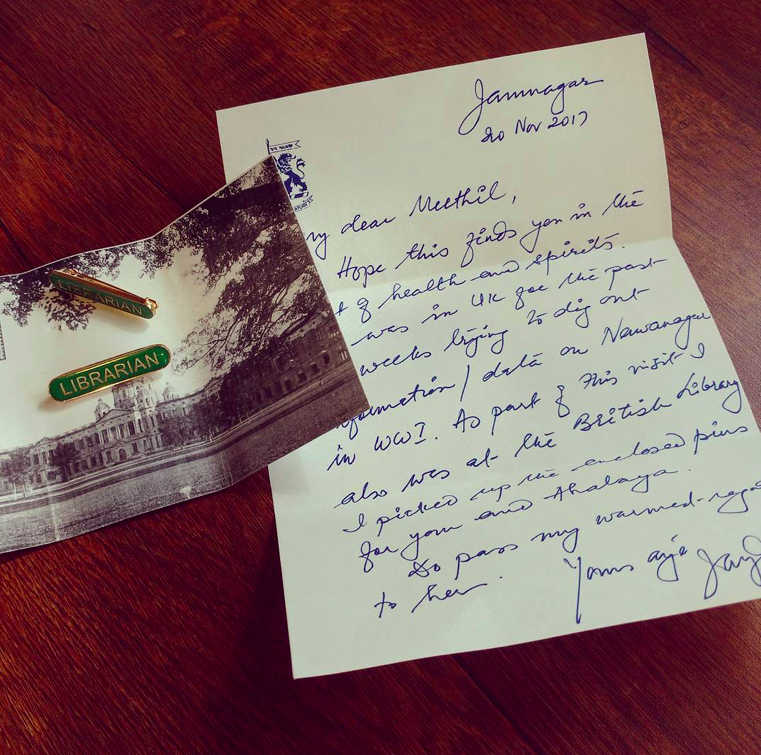 Jamnagar
20 Nov 2017
my dear Meethil,
Hope this finds you in the
t of health and spirits.
was in UK for the past
weeks trying to dig out
nformation / data on Nawanagar
in WWI. As part of this visit I
also was at the British Library
I picked up the enclosed pins
for you and Ahalaya.
Do pass my warmed rega
to her.
Yours aye
LIBRARIAN
LIBRARIAN